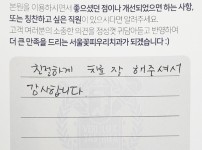 본원을 이용하시면서 좋으셨던 점이나 개선되었으면 하는 사항,
또는 칭찬하고 싶은 직원이 있으시다면 알려주세요.
고객 여러분의 소중한 의견을 정성껏 귀담아듣고 반영하여
더 큰 만족을 드리는 서울꽃피우리치과가 되겠습니다 :)
친절하게 치료 잘 해주셔서
감사합니다.